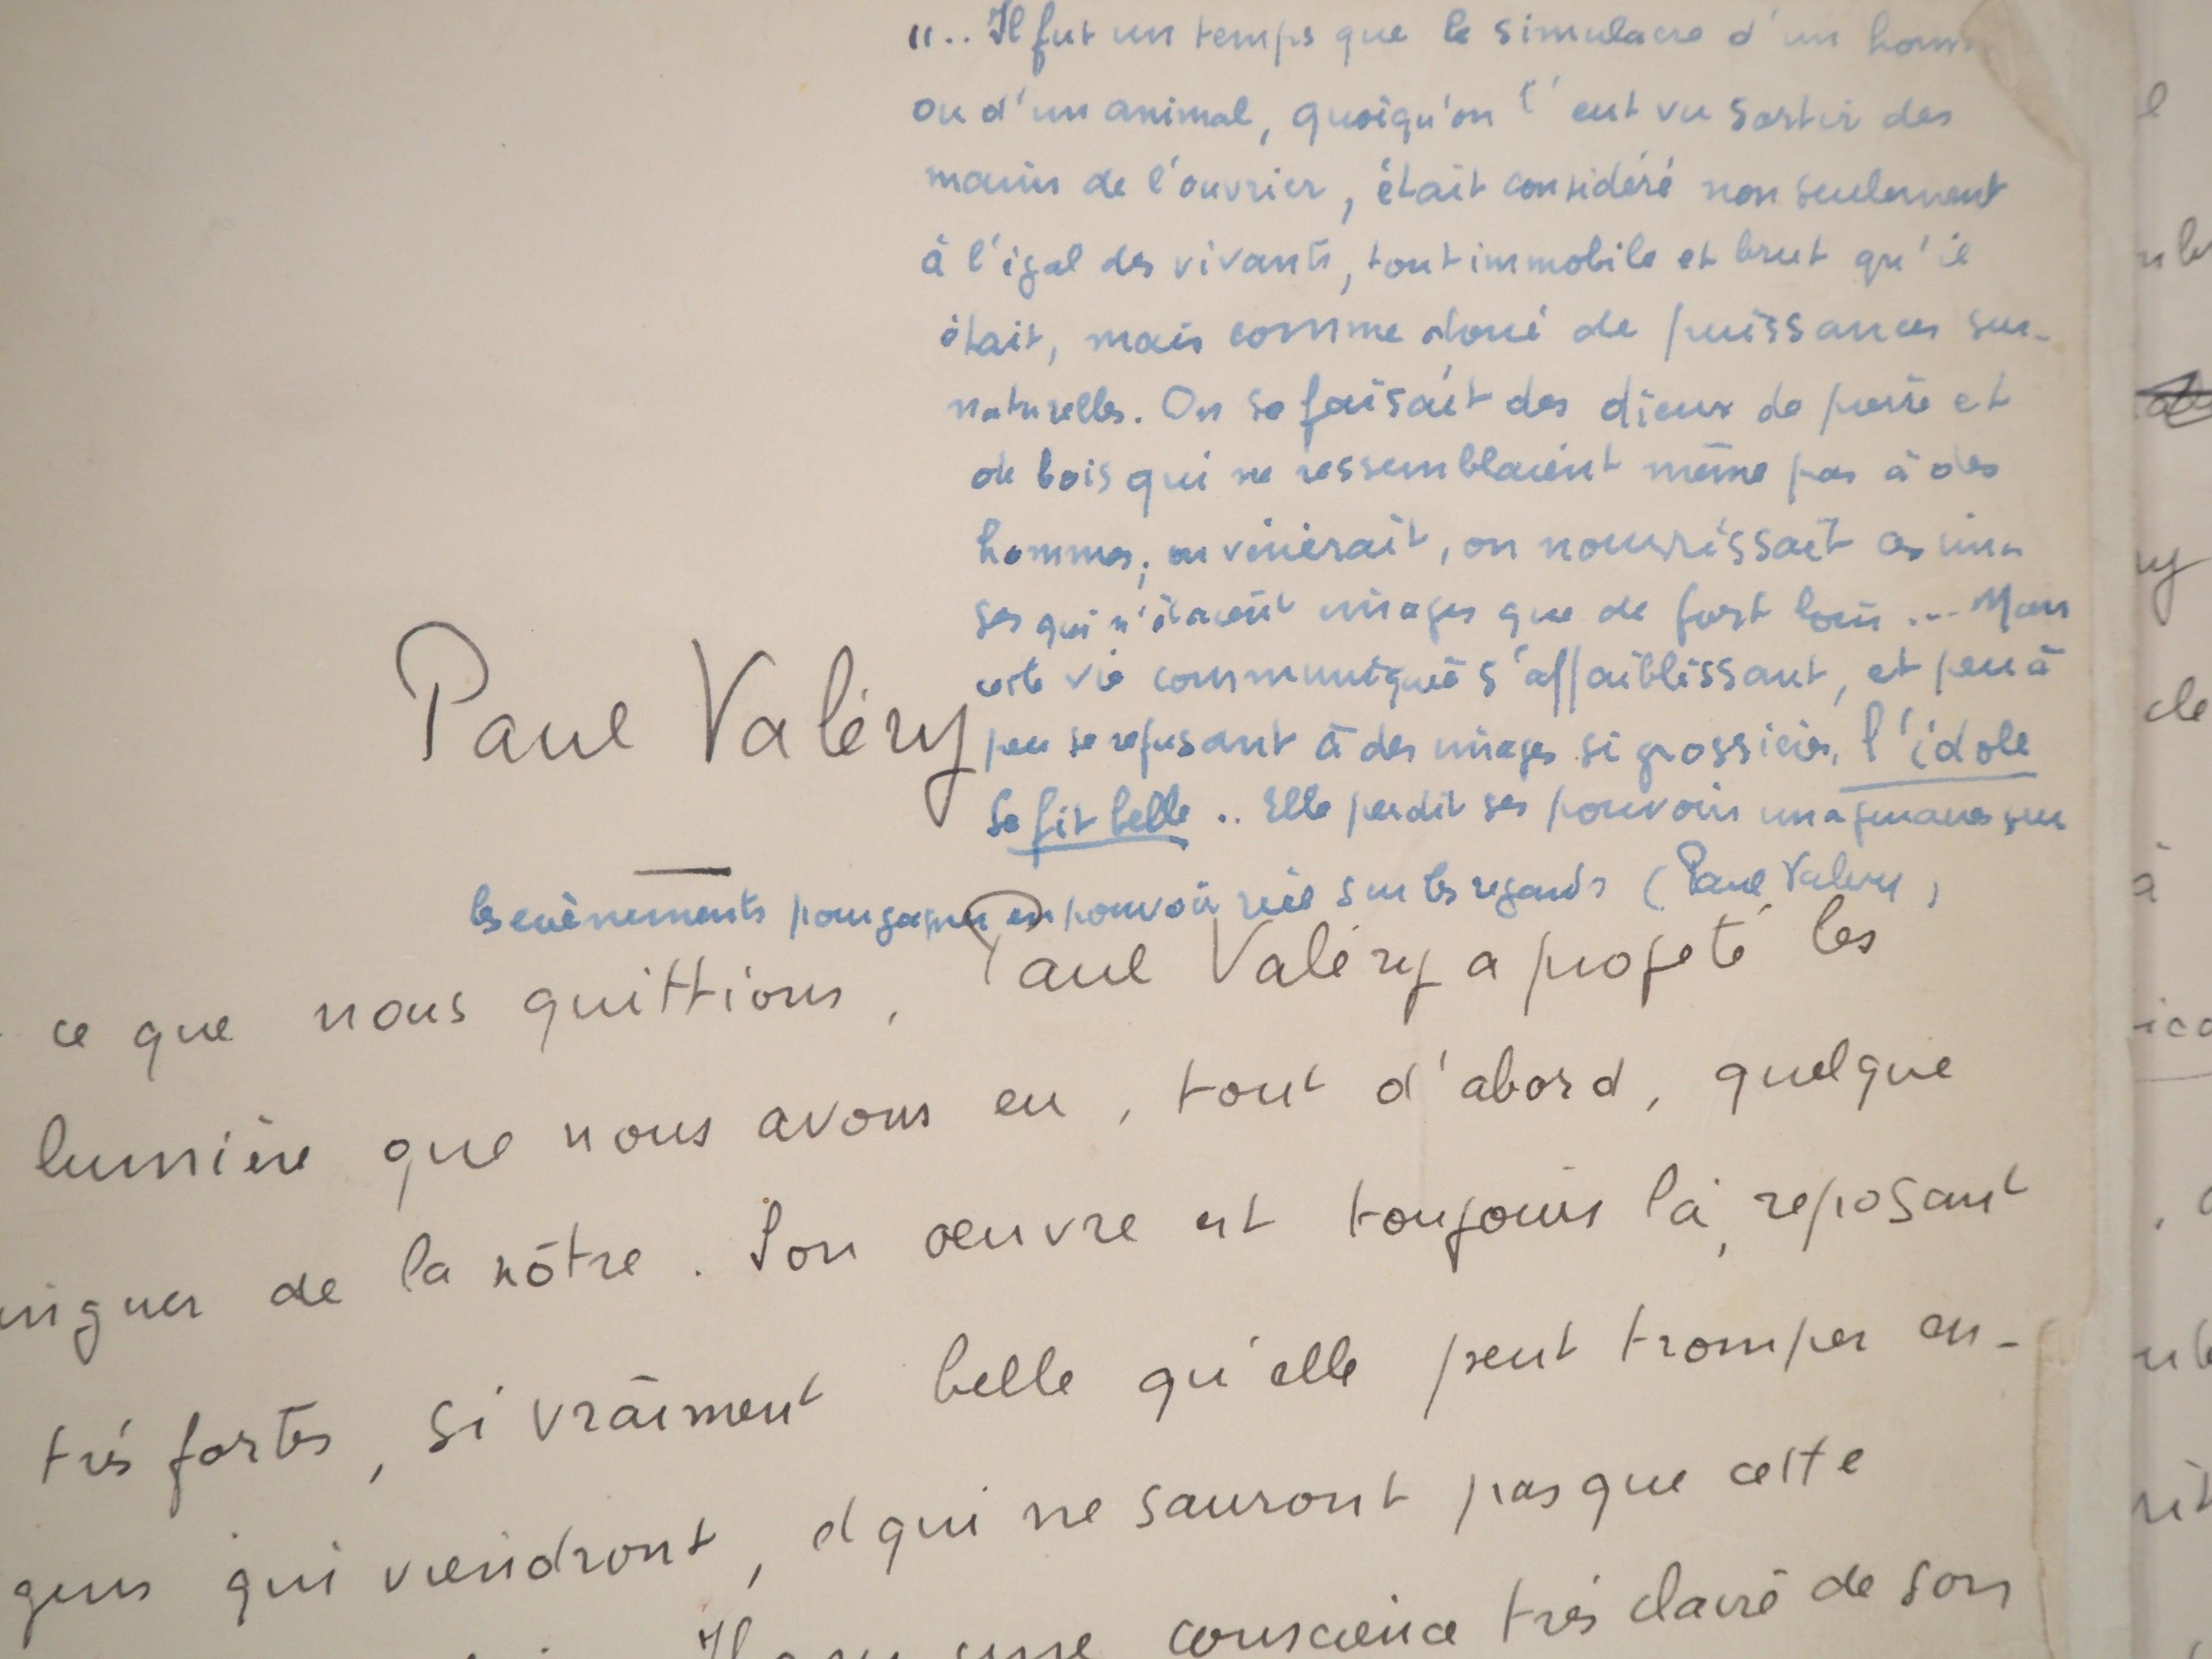 ".. Il fut un temps que le simulacre d'un
ou d'un animal, quoiqu'on l'eut vu sortir des
mains de l'ouvrier, était considéré non seulement
à l'égal des vivants, tout immobile et brut qu'il
était, mais comme doué de puissances sur-
naturelles. On se faisait des dieux de pierre et
de bois qui ne ressemblaient même pas à des
hommes; on vénérait, on nourrissait ces ima
ges qui n'étaient images que de fort loin ... Mais
cette vie communiquée s'affaiblissant, et peu à
peu se refusant à des images si grossières, l'idole
se fit belle .. Elle perdit ses pouvoirs imaginaires sur
les evènements pour gagner en pouvoir réel sur les regards (Paul Valery)
Paul Valéry
ce que nous quittions, Paul Valéry a projeté les
lumière que nous avons eu, tout d'abord, quelque
de la nôtre. Son oeuvre est toujours là, reposant
très fortes, si vraiment belle qu'elle peut tromper en-
gens qui viendront, et qui ne sauront pas que cette
Il a eu une conscience très claire de son